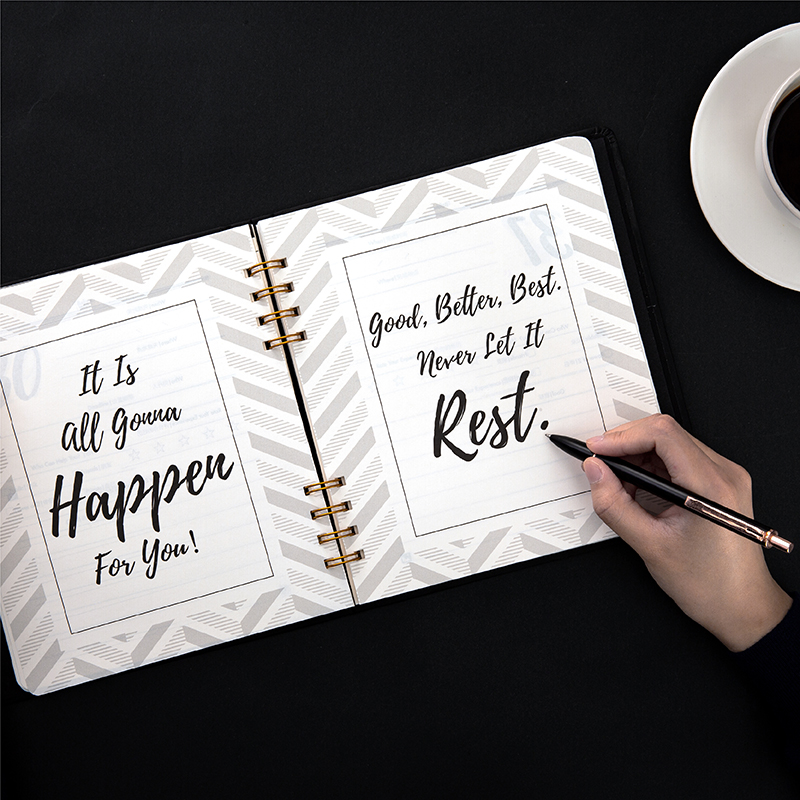 It Is
All Gonna
Happen
For You!
Good, Better, Best.
Never Let It
Rest.
37